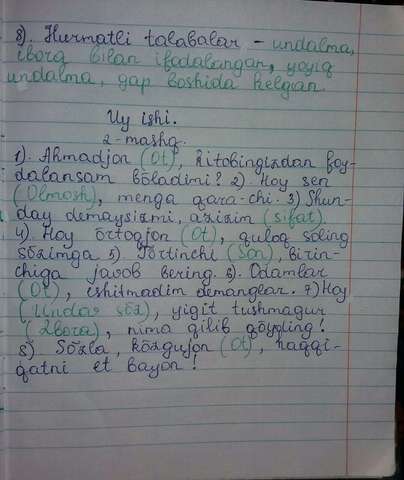 8). Hurmatli talabalar – undalma,
ibora bilan ifodalangan, yoyiq
undalma, gap boshida kelgan.
Uy ishi.
2-mashq.
1). Ahmadjon (Ot), kitobingizdan foy-
dalansam bõladimi? 2) Hoy sen
(Olmosh), menga qara-chi. 3) Shun-
day demaysizmi, azizim (sifat).
4). Hoy õrtoqjon (Ot), quloq soling
sõzimga. 5). Tõrtinchi (Son), birin-
chiga javob bering. 6). Odamlar
(Ot), eshitmadim demanglar. 7) Hoy
(Undov sõz), yigit tushmagur
(Ibora), nima qilib qõyding!
8) Sõzla, kõzgujon (Ot), haqqi-
qatni et bayon!